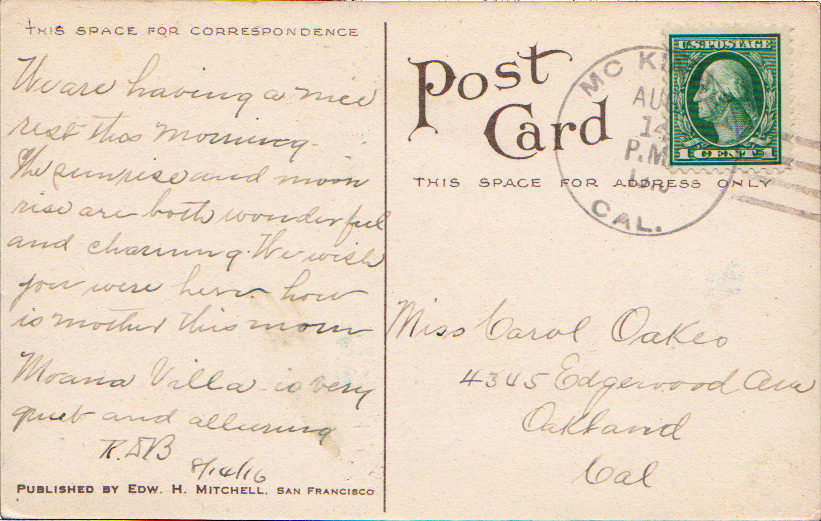 THIS SPACE FOR CORRESPONDENCE
We are having a nice
rest this morning.
The sunrise and moon
rise are both wonderful
and charming. We wish
you were here. how
is mother this morn
Moana Villa is very
quiet and alluring
8/14/16
PUBLISHED BY EDW. H. MITCHELL, SAN FRANCISCO
Post
Card
THIS SPACE FOR ADDRESS ONLY
MC K
AU
14
P.M
CAL.
U.S. POSTAGE
1 CENT 1
Miss Carol Oakes
4345 Edgewood Ave
Oakland
Cal